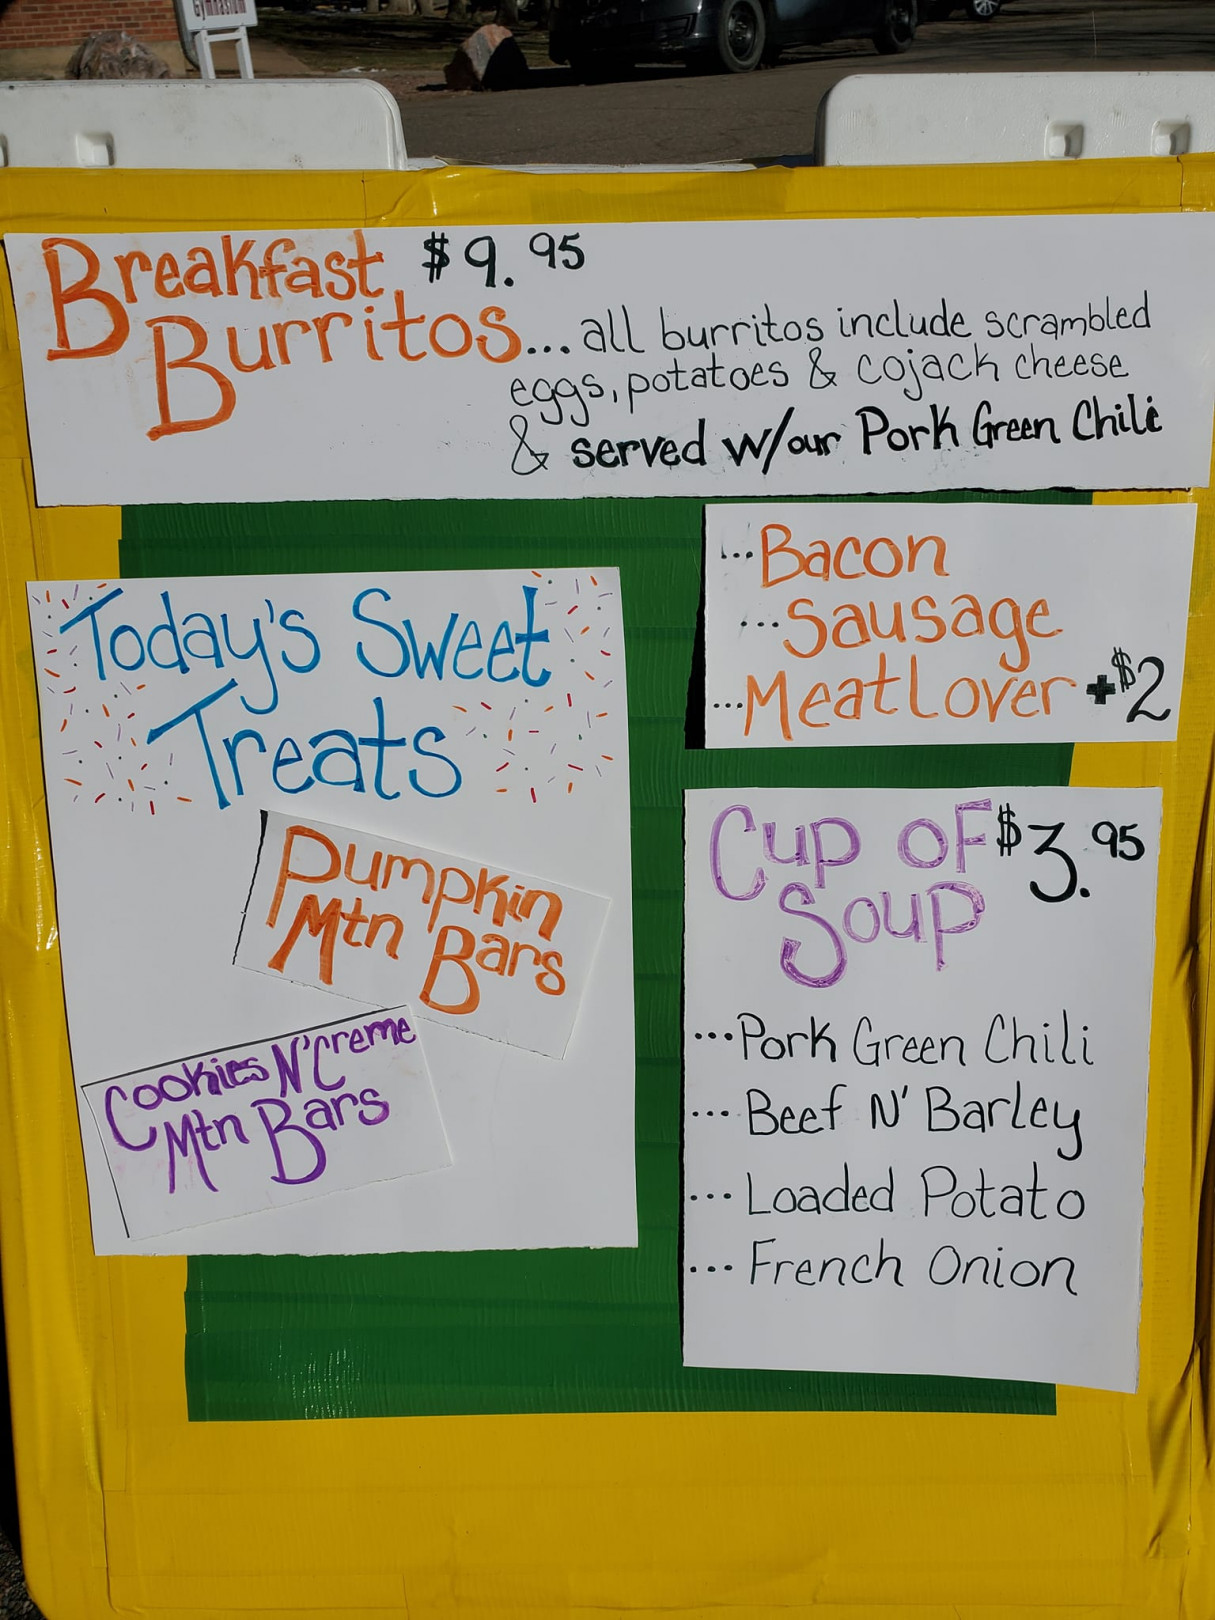 Gymnasium
Breakfast $9.95
Burritos...all burritos include scrambled
eggs, potatoes & cojack cheese
& served w/our Pork Green Chili
...Bacon
...Sausage
...MeatLover +$2
Today's Sweet
Treats
Pumpkin
Mtn Bars
Cookies N'Creme
Mtn Bars
Cup of $3.95
Soup
...Pork Green Chili
...Beef N' Barley
...Loaded Potato
...French Onion